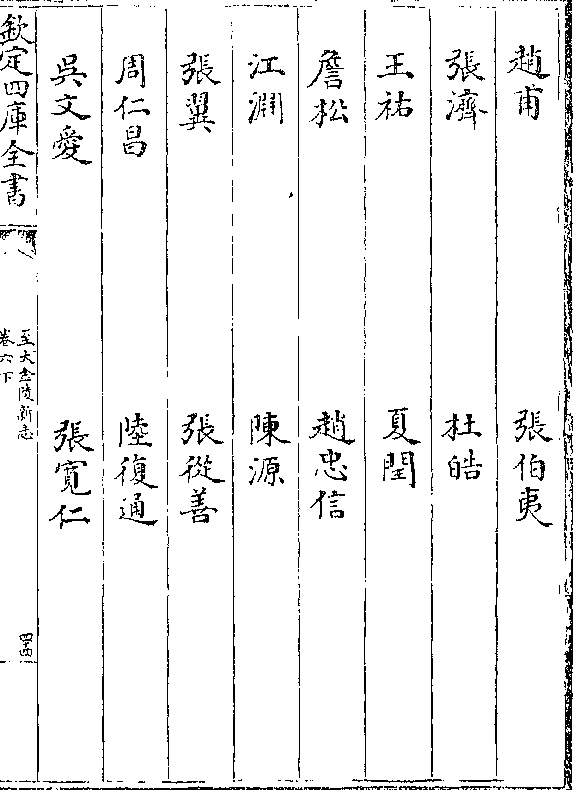 趙甫　張伯夷
張濟　杜皓
王祐　夏閏
詹松　趙忠信
江淵　陳源
張翼　張從善
周仁昌　陸復通
吳文愛　張寛仁
欽定四庫全書
至大金陵新志
卷六下
四十四